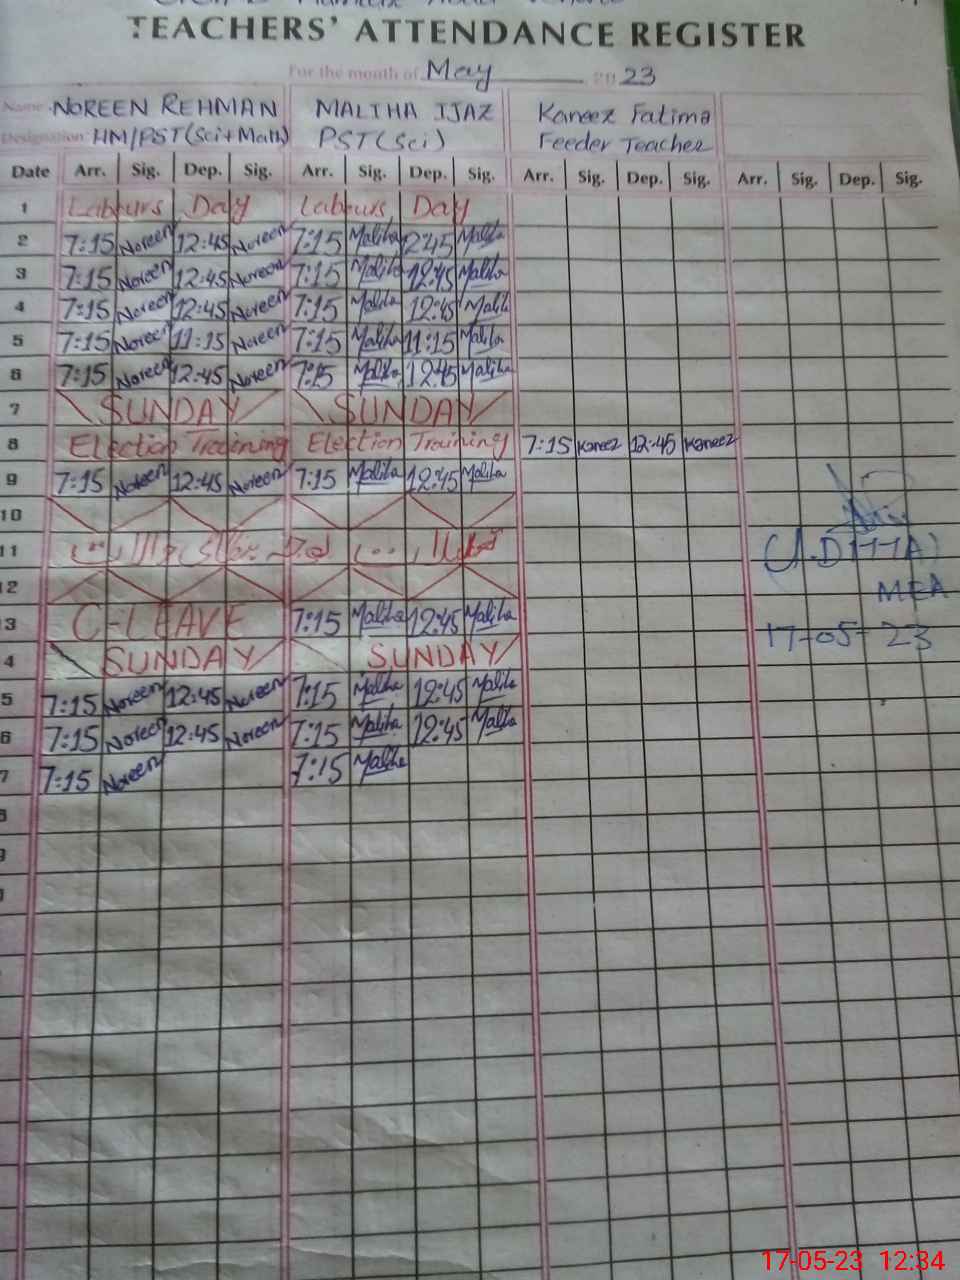 TEACHERS' ATTENDANCE REGISTER
For the month of May 2023
Name NOREEN REHMAN MALIHA IJAZ Kaneez Fatima
Designation HM/PST(Sci+Math) PST(Sci) Feeder Teacher
Date Arr. Sig. Dep. Sig. Arr. Sig. Dep. Sig. Arr. Sig. Dep. Sig. Arr. Sig. Dep. Sig.
1 Labours Day Labours Day
2 7:15 Noreen 12:45 Noreen 7:15 Maliha 12:45 Maliha
3 7:15 Noreen 12:45 Noreen 7:15 Maliha 12:45 Maliha
4 7:15 Noreen 12:45 Noreen 7:15 Maliha 12:45 Maliha
5 7:15 Noreen 11:15 Noreen 7:15 Maliha 11:15 Maliha
6 7:15 Noreen 12:45 Noreen 7:15 Maliha 12:45 Maliha
7 SUNDAY SUNDAY
8 Election Training Election Training 7:15 Kaneez 12:45 Kaneez
9 7:15 Noreen 12:45 Noreen 7:15 Maliha 12:45 Maliha
10
11
12
3 C-LEAVE 7:15 Maliha 12:45 Maliha
4 SUNDAY SUNDAY
5 7:15 Noreen 12:45 Noreen 7:15 Maliha 12:45 Maliha
6 7:15 Noreen 12:45 Noreen 7:15 Maliha 12:45 Maliha
7 7:15 Noreen 7:15 Maliha
8
9
(A.DITTA)
MEA
17-05-23
17-05-23 12:34